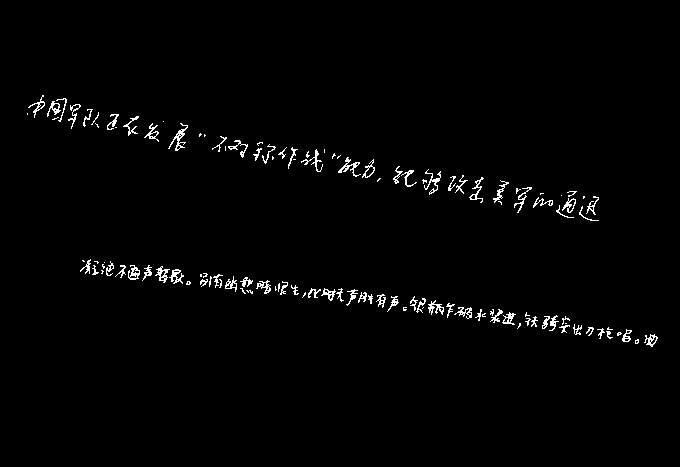 中国军队正在发展“不对称作战”能力,能够攻击美军的通迅
凝绝不通声暂歇。别有幽愁暗恨生,此时无声胜有声。银瓶乍破水浆迸,铁骑突出刀枪鸣。曲